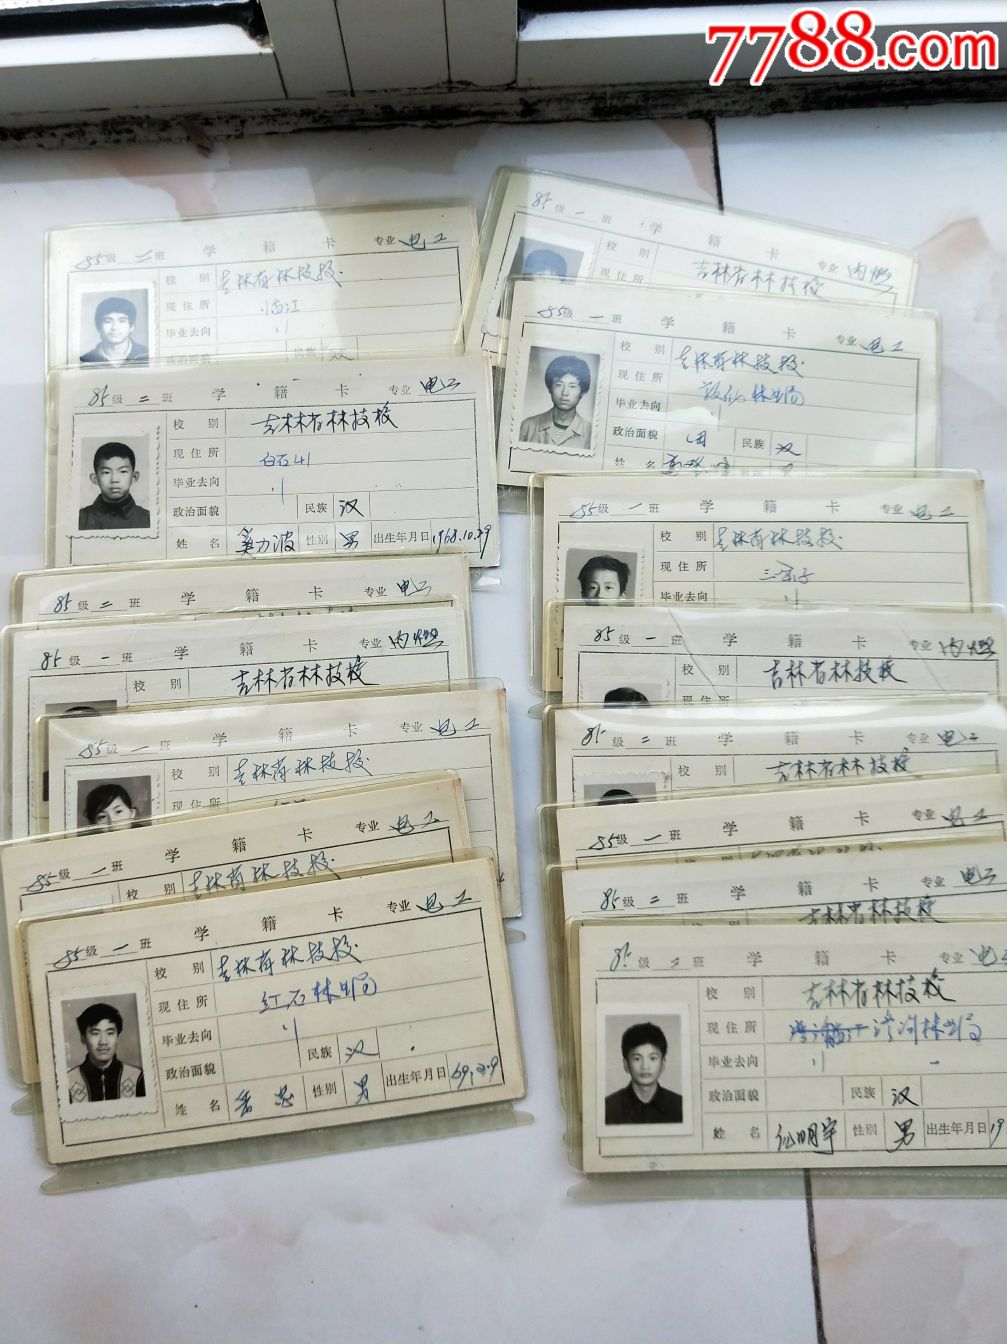 7788.com
85级 二 班 学 籍 卡 专业 电工
校 别 吉林省林技校
现住所 临江
毕业去向 〃
政治面貌 民族 汉
85级 二 班 学 籍 卡 专业 电工
校 别 吉林省林技校
现住所 白石山
毕业去向 〃
政治面貌 民族 汉
姓 名 性别 男 出生年月日 1968.10.29
85级 二 班 学 籍 卡 专业 电工
85级 一 班 学 籍 卡 专业 内燃
校 别 吉林省林技校
85级 一 班 学 籍 卡 专业 电工
校 别 吉林省林技校
现住所
85级 一 班 学 籍 卡 专业 电工
校 别 吉林省林技校
85级 一 班 学 籍 卡 专业 电工
校 别 吉林省林技校
现住所 红石林业局
毕业去向 〃
政治面貌 民族 汉
姓 名 性别 男 出生年月日
85级 一 班 学 籍 卡 专业 内燃
吉林省林技校
85级 一 班 学 籍 卡 专业 电工
校 别 吉林省林技校
现住所 敦化林业局
毕业去向 〃
政治面貌 团 民族 汉
姓 名
85级 一 班 学 籍 卡 专业 电工
校 别 吉林省林技校
现住所 三岔子
毕业去向 〃
85级 一 班 学 籍 卡 专业 内燃
校 别 吉林省林技校
现住所
85级 二 班 学 籍 卡 专业 电工
校 别 吉林省林技校
85级 一 班 学 籍 卡 专业 电工
85级 二 班 学 籍 卡 专业 电工
吉林省林技校
85级 二 班 学 籍 卡 专业 电工
校 别 吉林省林技校
现住所 林业局
毕业去向 〃
政治面貌 民族 汉
姓 名 明宇 性别 男 出生年月日 19